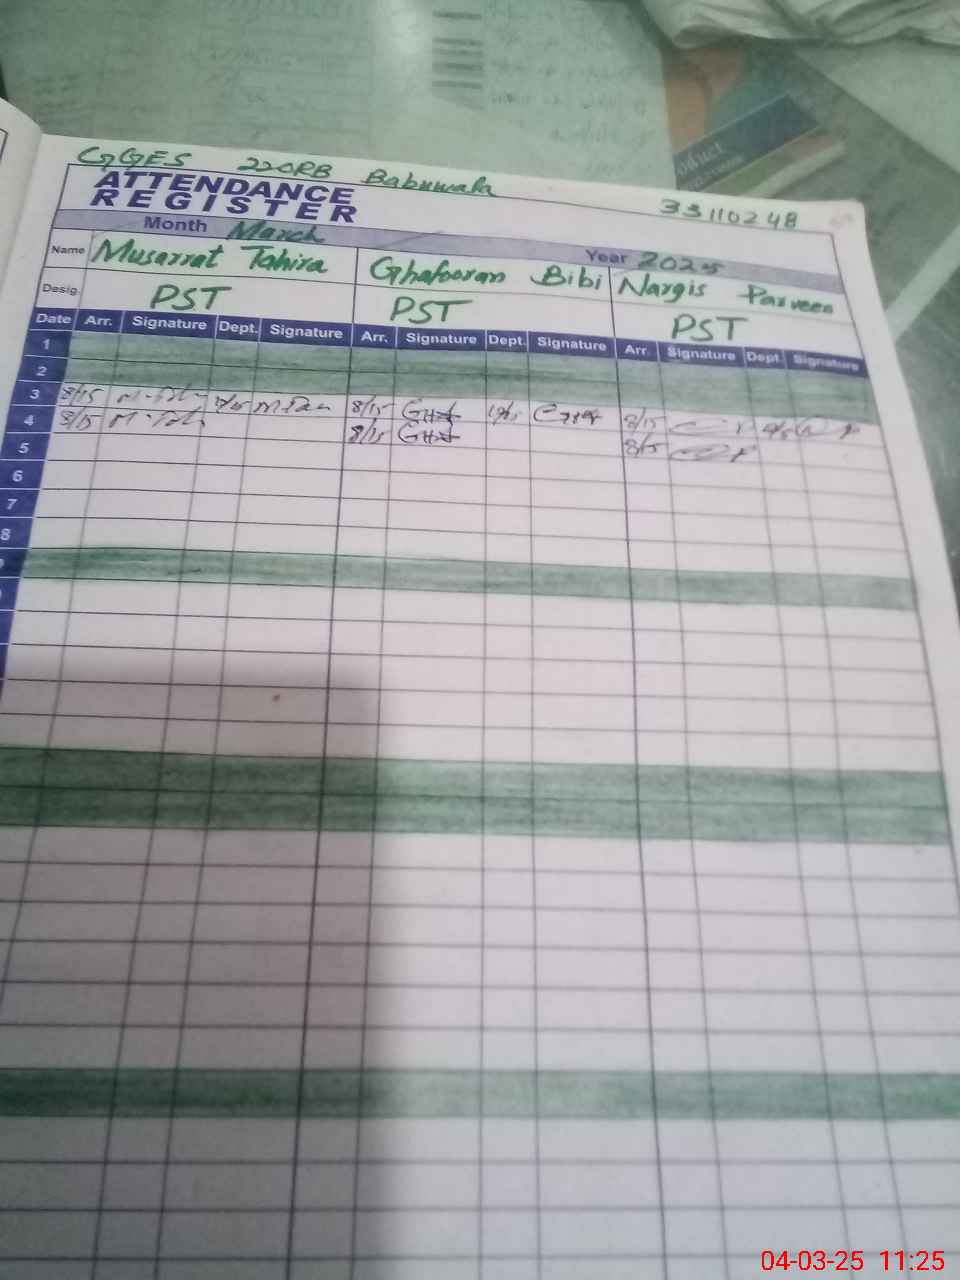 GGES 220RB Babuwala 33110248
ATTENDANCE
REGISTER
Month March Year 2025
Name Musarrat Tahira Ghafooran Bibi Nargis Parveen
Desig. PST PST PST
Date Arr. Signature Dept. Signature Arr. Signature Dept. Signature Arr. Signature Dept. Signature
1
2
3 8/15 8/15 8/15
4 8/15 8/15 8/15
5
6
7
8
04-03-25 11:25